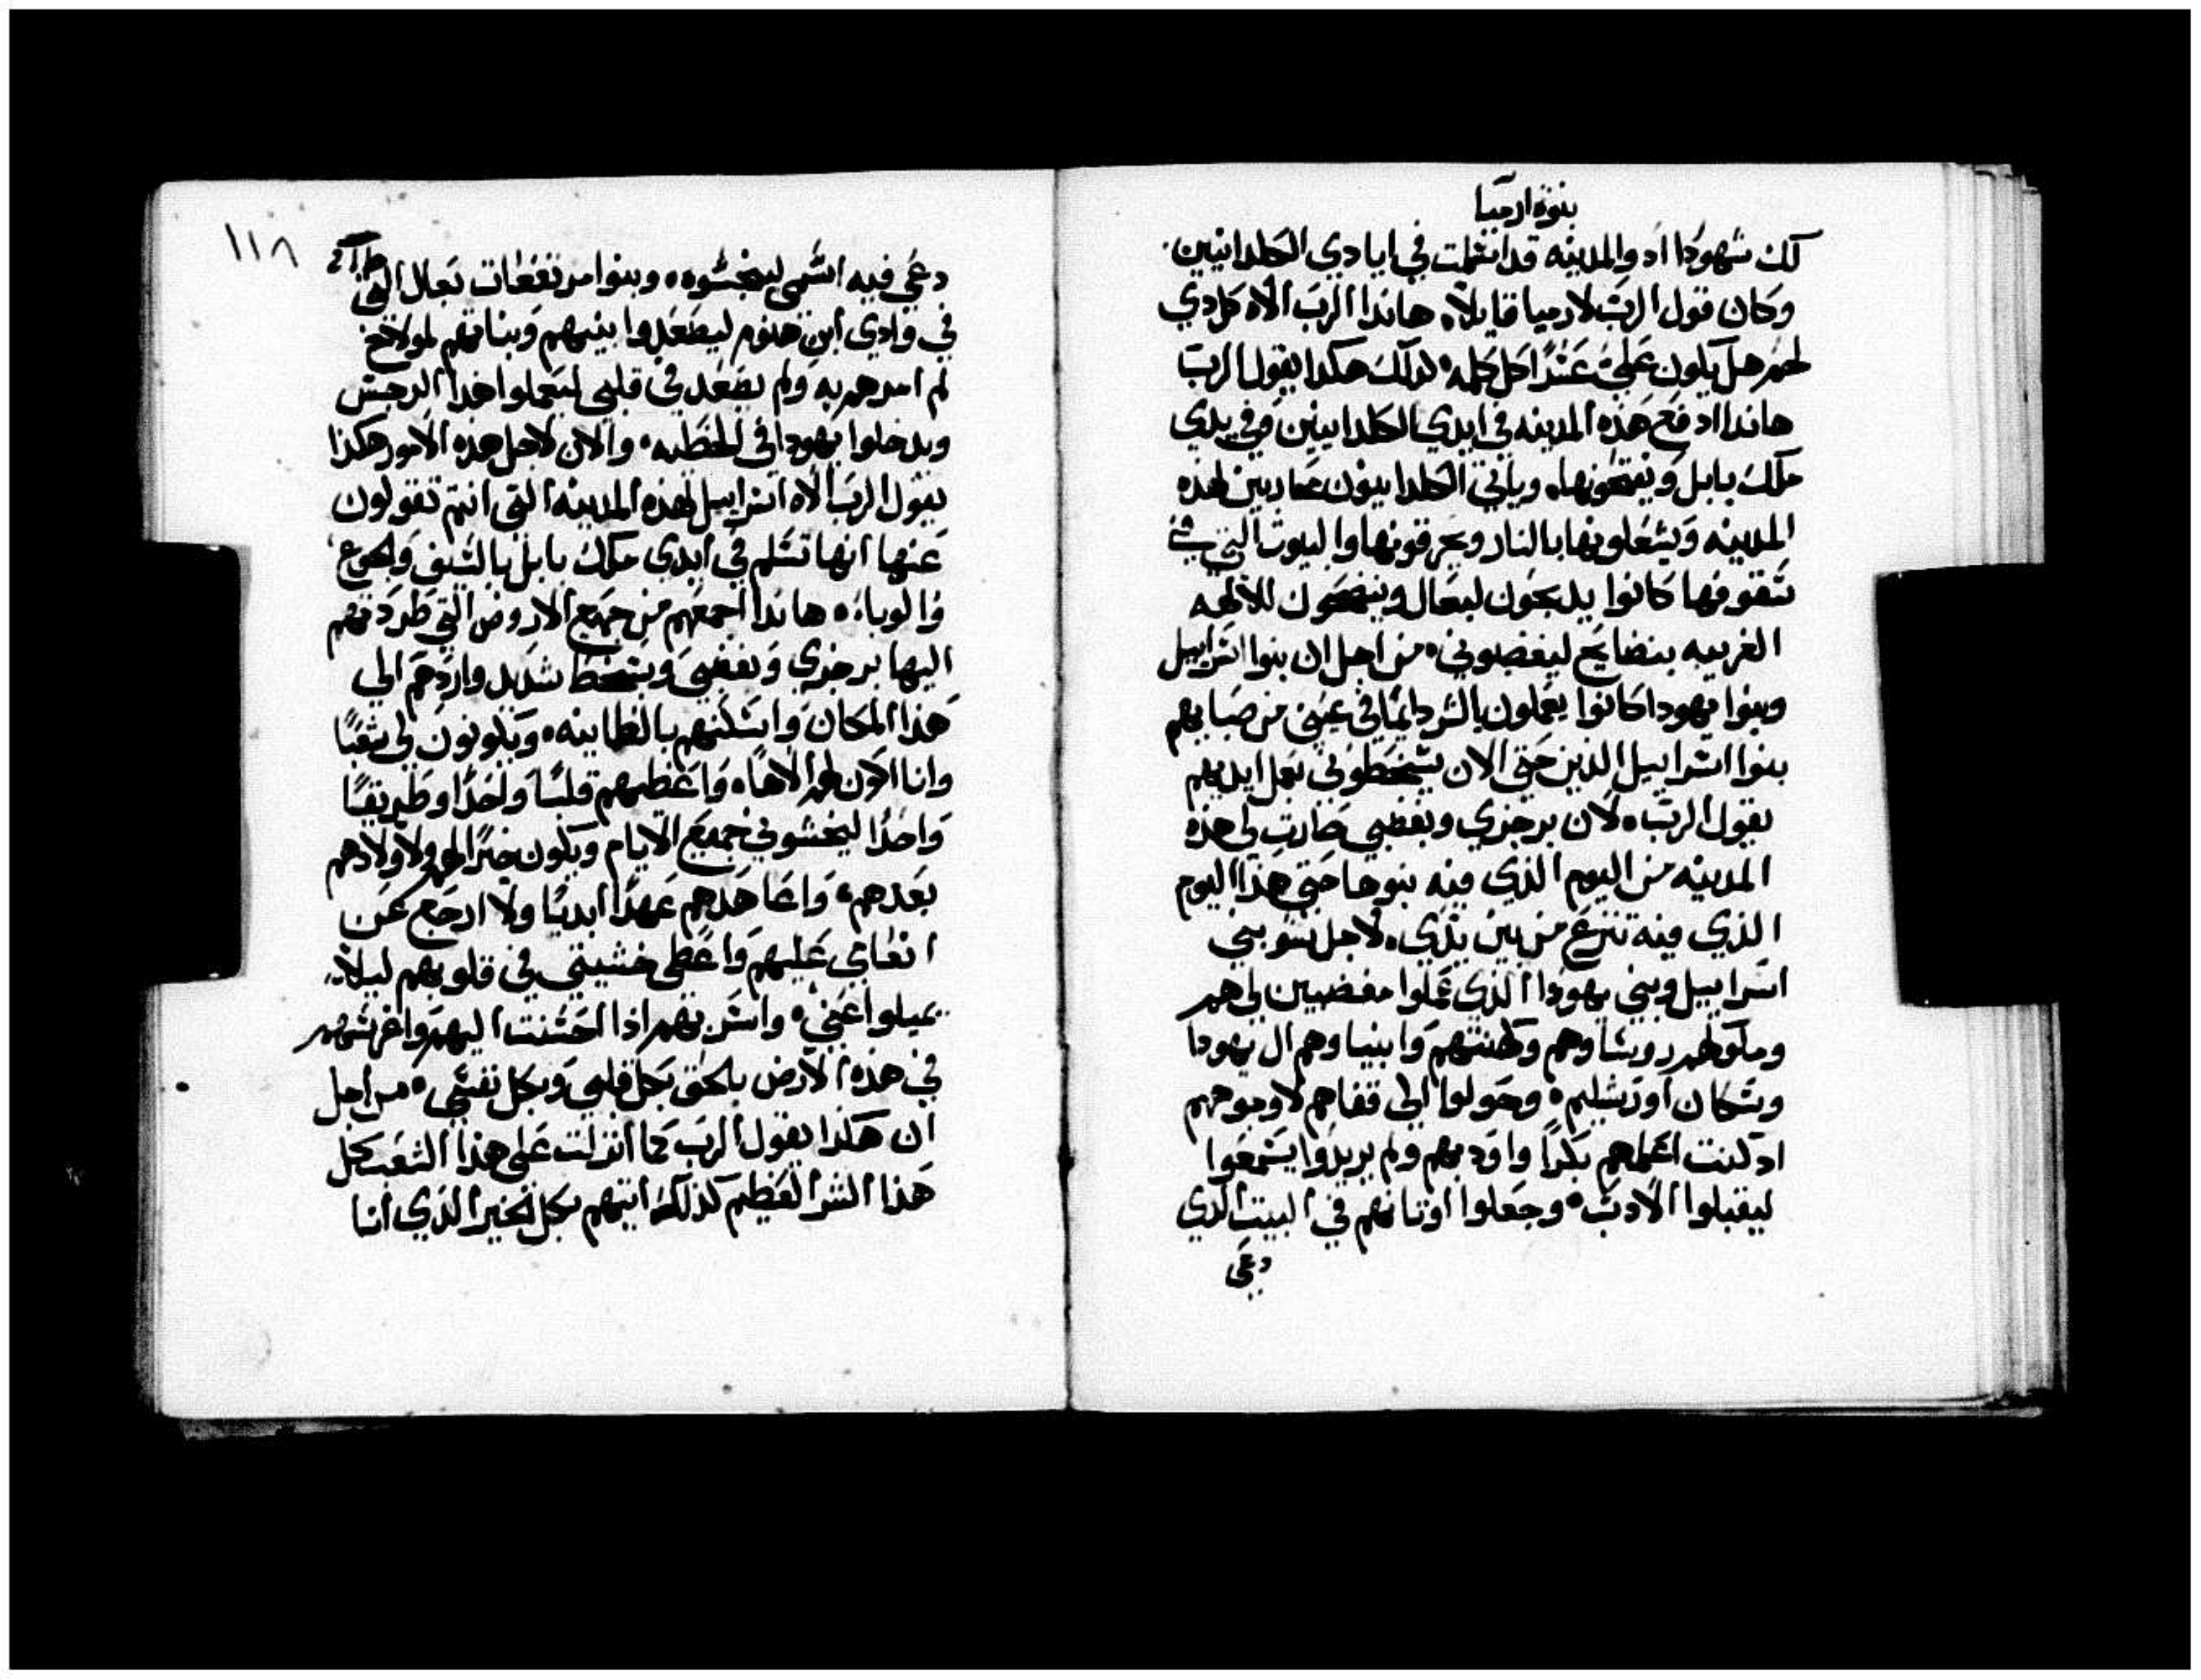 بنوة ارميا
لك شهودا اد والمدينه قد اسلمت في ايادي الكلدانيين
وكان قول الرب لارميا قايلا هاندا الرب الاه كل دي
لحم هل يكون علي عندا كل كلمه لدلك هكدا يقول الرب
هاندا ادفع هذه المدينه في ايدي الكلدانيين وفي يدي
ملك بابل ويفتحونها وياتي الكلدانيون محاربين لهذه
المدينه ويشعلونها بالنار ويحرقونها والبيوت التي في
سقوفها كانوا يدبحون لبعال وينضحون للالهه
الغريبه بنضايح ليغضبوني من اجل ان بنوا اسراييل
وبنوا يهودا كانوا يعملون بالشر دايما في عيني من صبايهم
بنوا اسراييل الذين حتي الان يسخطوني بعمل ايديهم
يقول الرب لان برجزي وبغضبي صارت لي هذه
المدينه من اليوم الذي فيه بنوها حتي هذا اليوم
الذي فيه تنزع من بين يدي لاجل سو بني
اسراييل وبني يهودا الذي عملوا مغضبين لي هم
وملوكهم روساوهم وكهنتهم وانبياوهم ال يهودا
وسكان اورشليم وحولوا الي قفاهم لا وجوههم
اد كنت اعلمهم بكرا واودبهم ولم يريدوا يسمعوا
ليقبلوا الادب وجعلوا اوتانهم في البيت الدي
دعي
١١٨
دعي فيه اسمي لينجسوه وبنوا مرتفعات بعال التي
في وادي ابن هنوم ليصعدوا بنيهم وبناتهم لمولاخ
لم امرهم به ولم يصعد في قلبي ليعملوا هذا الرجس
ويدخلوا يهودا في الخطيه والان لاجل هذه الامور هكذا
يقول الرب الاه اسراييل لهذه المدينه التي انتم تقولون
عنها انها تسلم في ايدي ملك بابل بالسيف والجوع
والوباء هاندا اجمعهم من جميع الاروض التي طردتهم
اليها برجزي وبغضبي وبسخط شديد واردهم الي
هذا المكان واسكنهم بالطمانينه ويكونون لي شعبا
وانا اكون لهم الاها واعطيهم قلبا واحدا وطريقا
واحدا ليخشوني جميع الايام ويكون خيرا لهم ولاولادهم
بعدهم واعاهدهم عهدا ابديا ولا ارجع عن
انعامي عليهم واعطي خشيتي في قلوبهم ليلا
يميلوا عني واسر بهم اذا احسنت اليهم واغرسهم
في هذه الارض بالحق بكل قلبي وبكل نفسي من اجل
ان هكذا يقول الرب كما انزلت علي هذا الشعب كل
هذا الشر العظيم كذلك اتيهم بكل الخير الذي انا